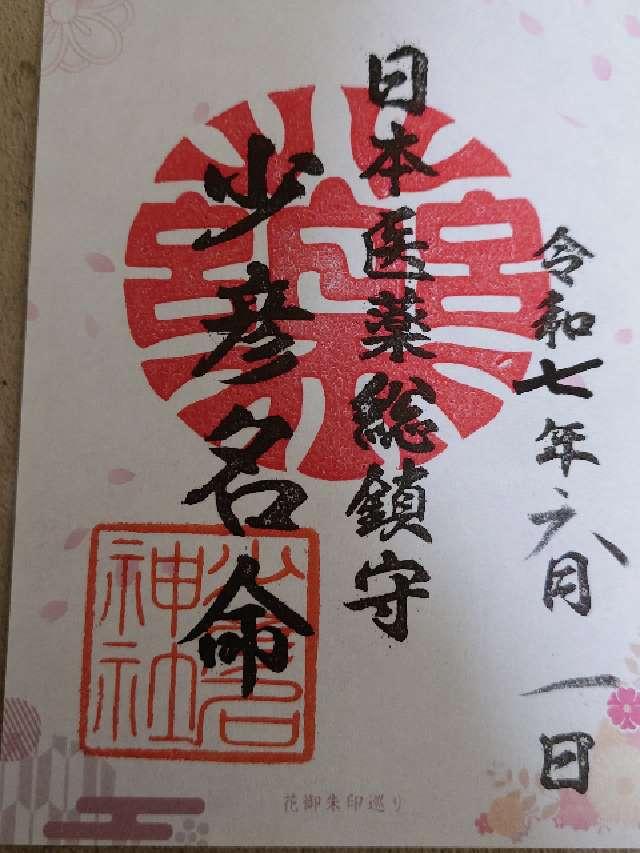 令和七年六月一日
日本医薬総鎮守
少彦名命
少彦名
神社
花御朱印巡り